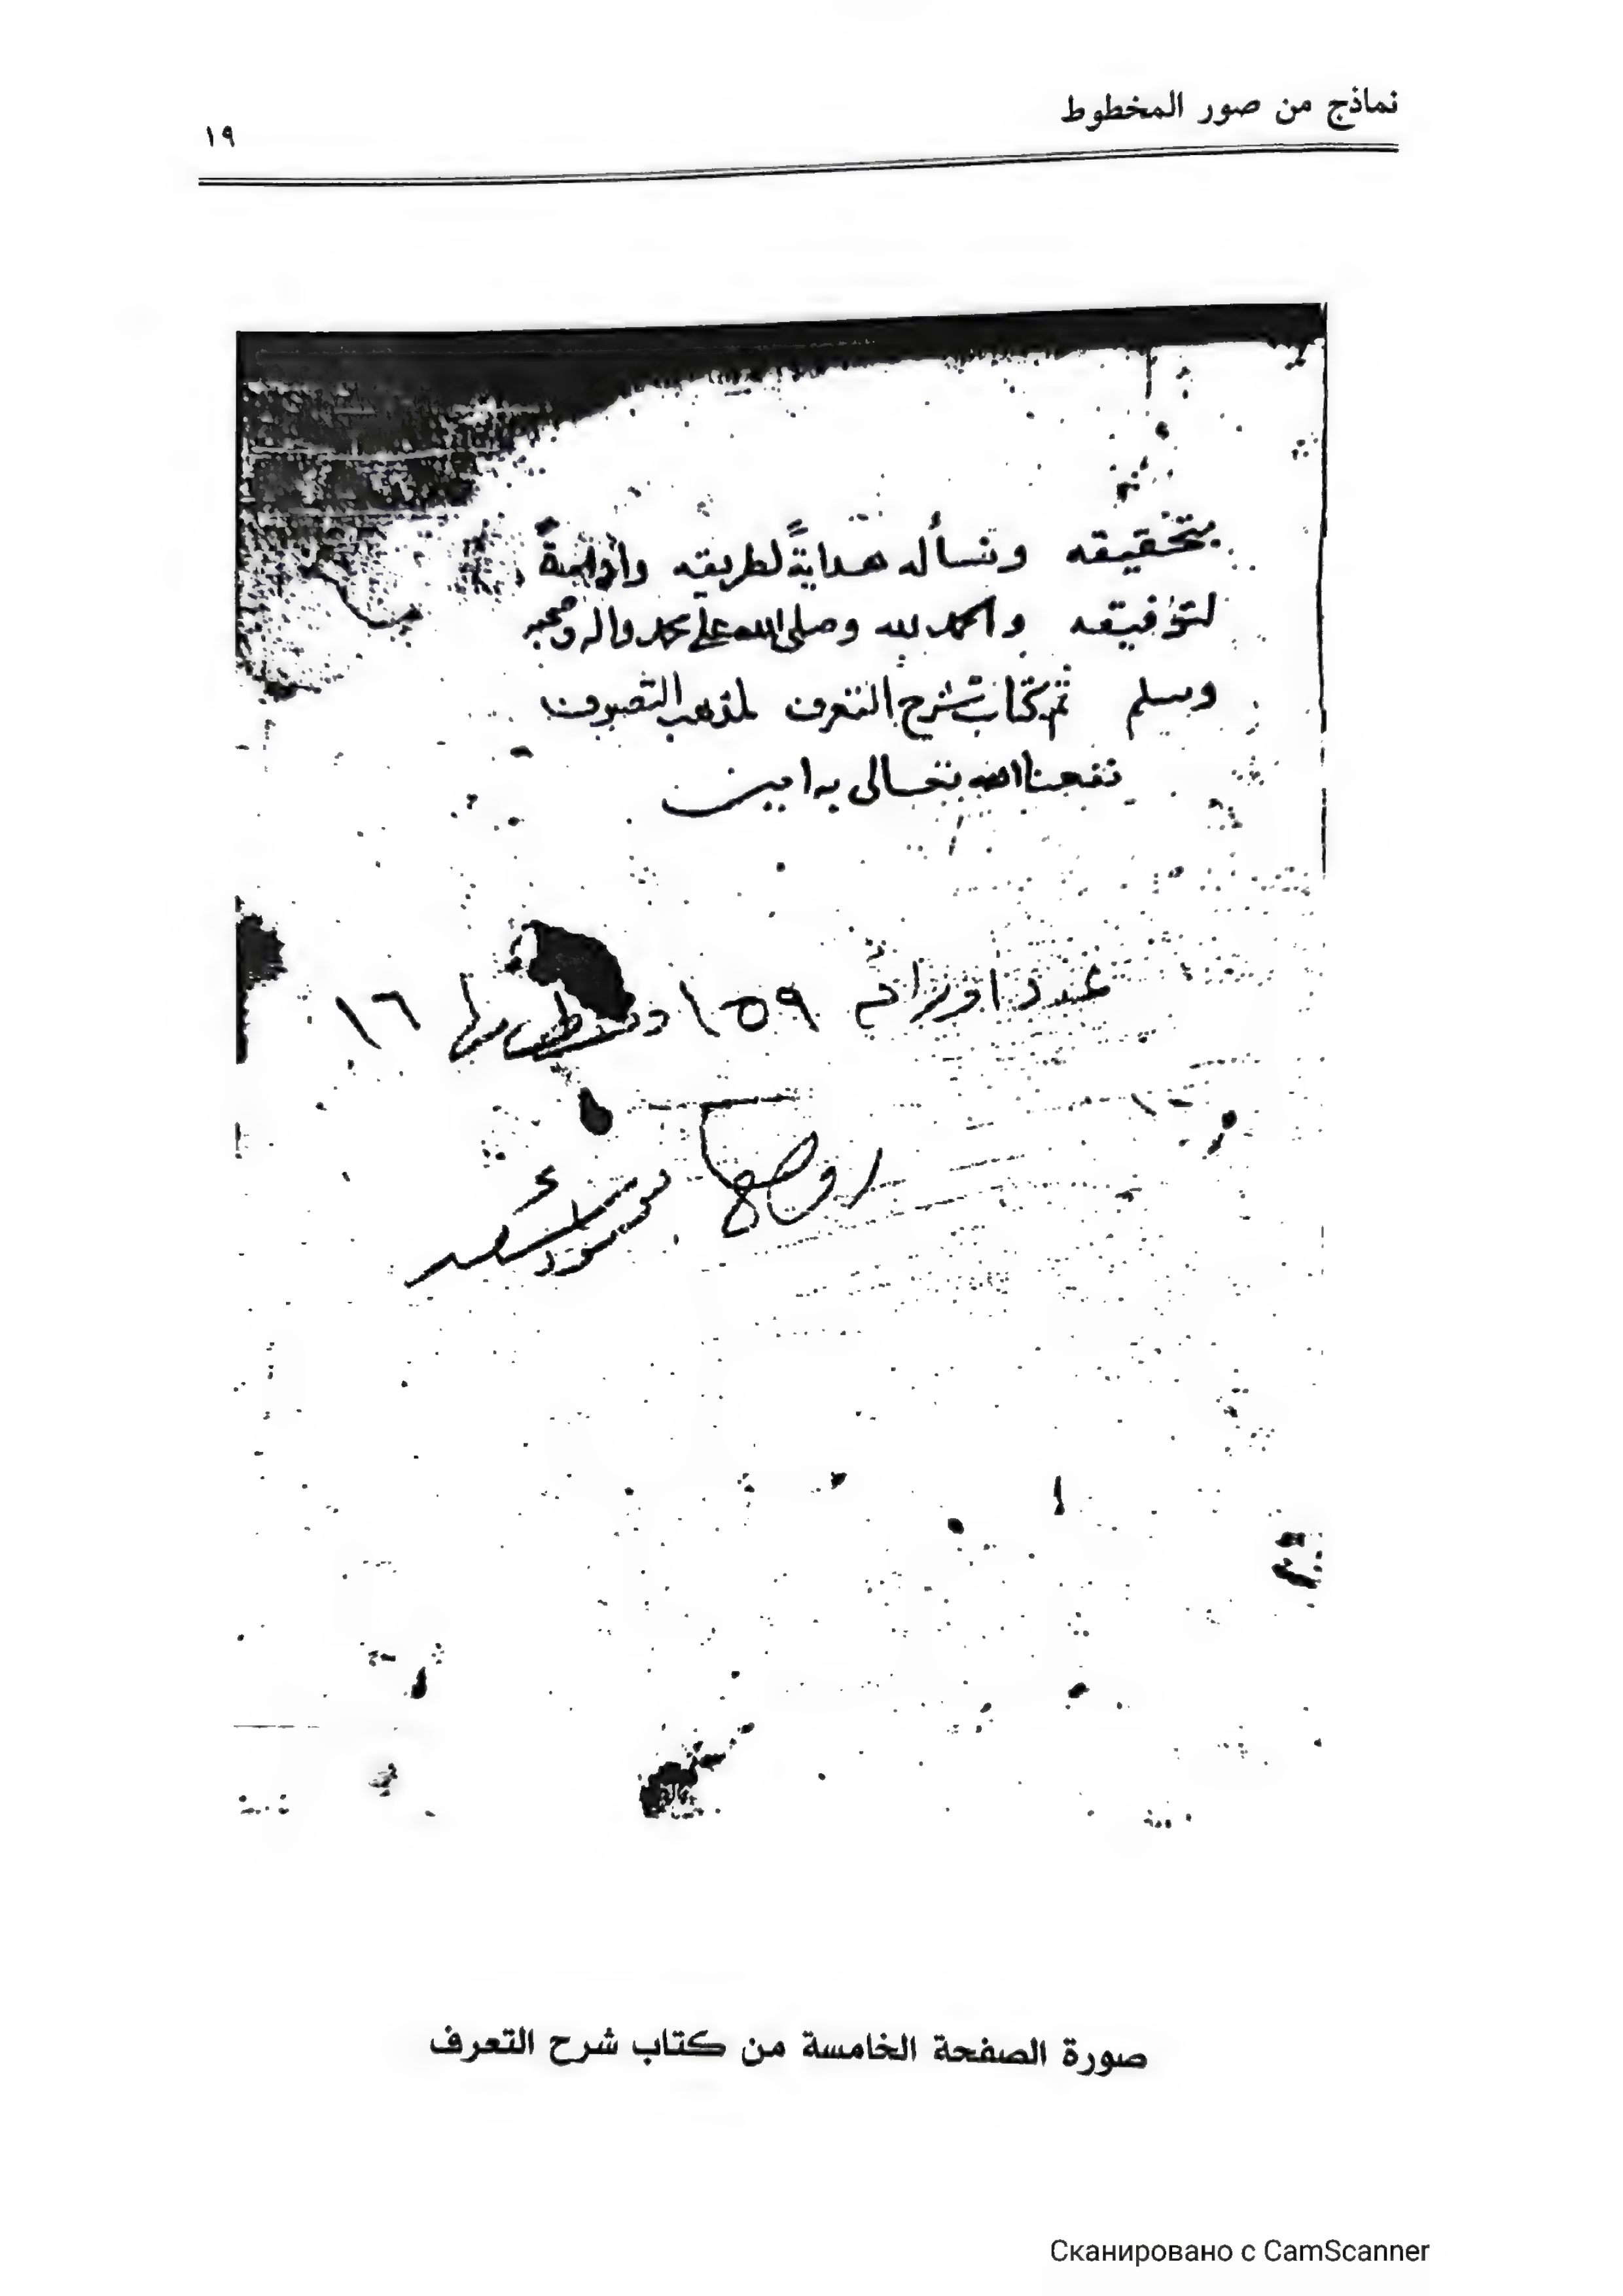 نماذج من صور المخطوط
١٩
بتحقيقه ونسأله هدايةً لطريقه
لتوفيقه والحمد لله وصلى الله على محمد واله وصحبه
وسلم تم كتاب شرح التعرف لمذهب التصوف
نفعنا الله تعالى به امين
عدد اوراقه ١٥٩ ١٦
صورة الصفحة الخامسة من كتاب شرح التعرف
Сканировано с CamScanner